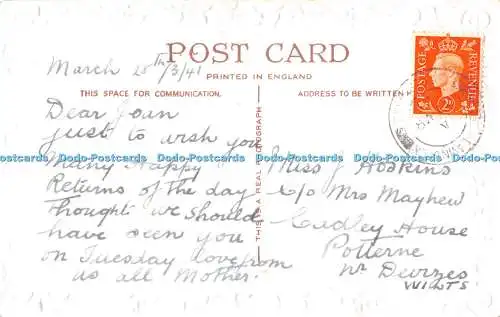 POST CARD
PRINTED IN ENGLAND
THIS SPACE FOR COMMUNICATION.
ADDRESS TO BE WRITTEN H
March 20th/3/41
Dear Joan
just to wish you
Many Happy
Returns of the day
Thought we should
have seen you
on Tuesday love from
us all Mother.
THIS IS A REAL PHOTOGRAPH
Miss J Hoskins
c/o Mrs Mayhew
Cadley House
Potterne
nr Devizes
WILTS
POSTAGE
REVENUE
2D
Dodo-Postcards Dodo-Postcards Dodo-Postcards Dodo-Postcards Dodo-Postcards